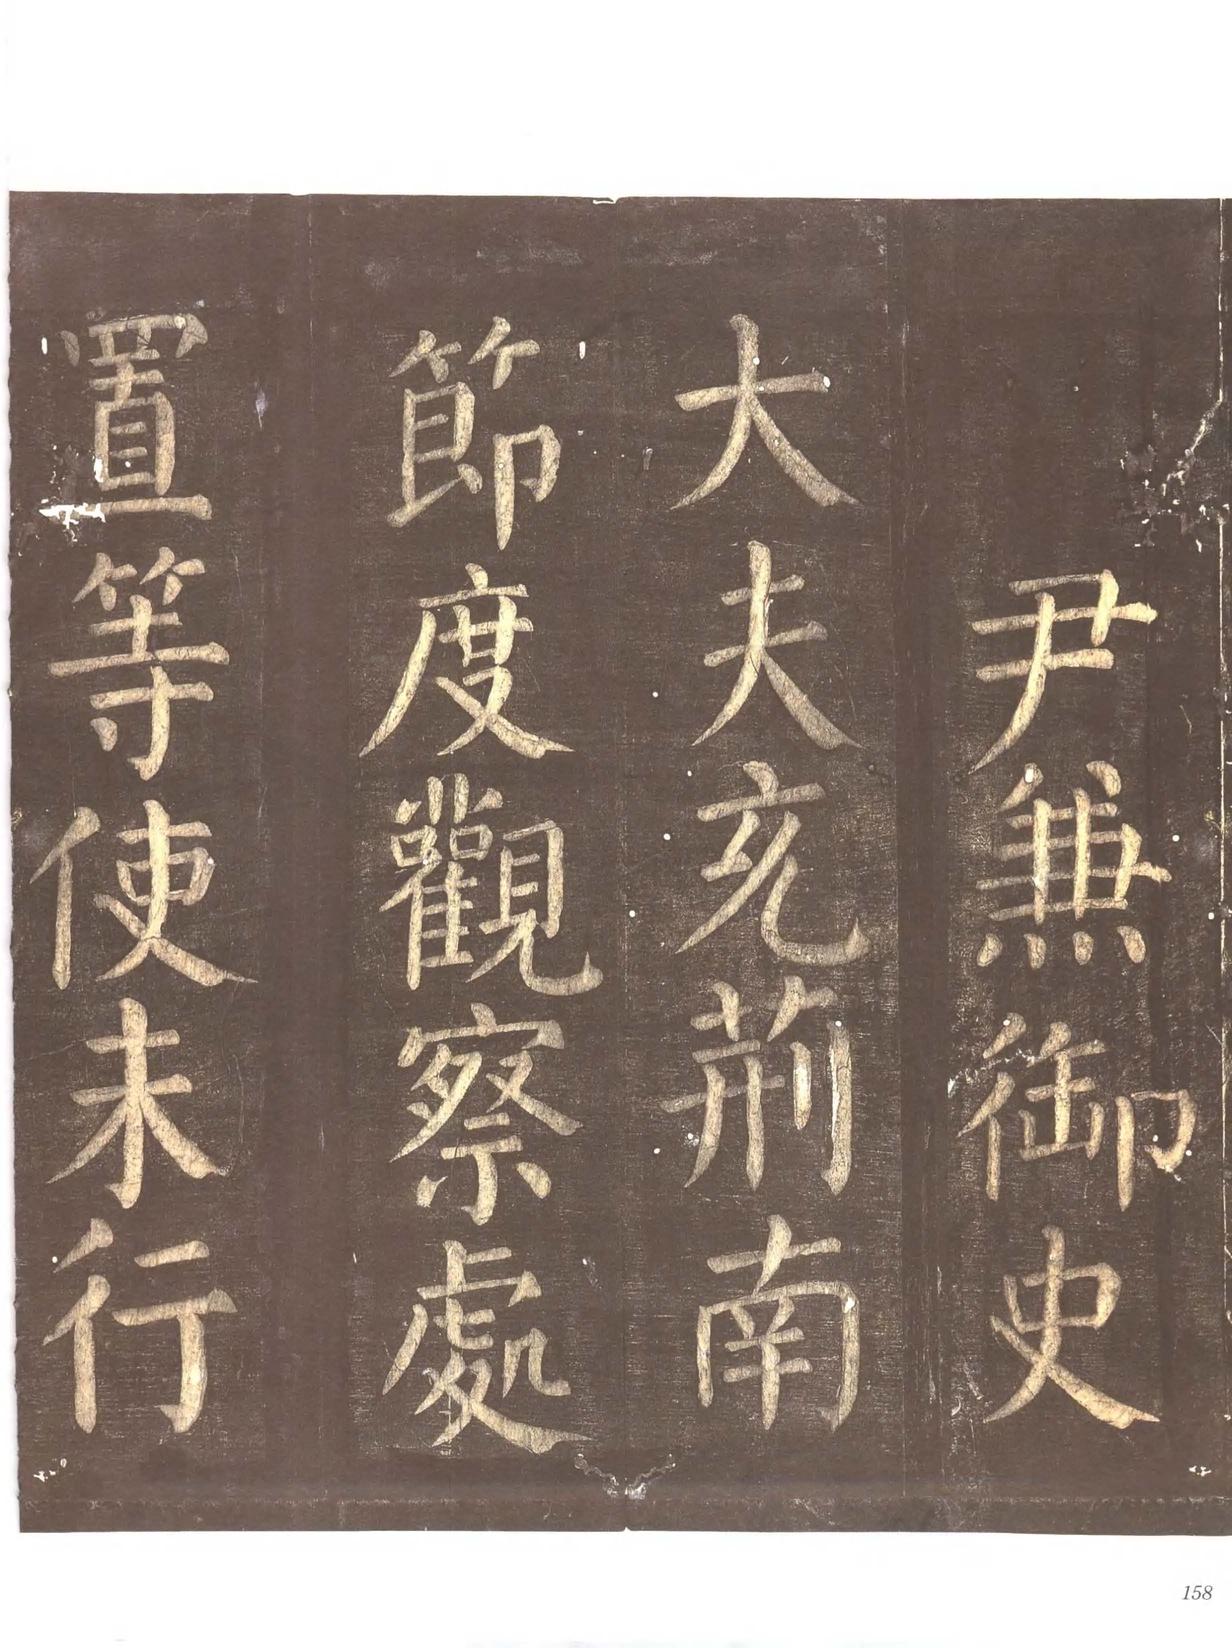 尹兼御史
大夫充荊南
節度觀察處
置等使未行
158